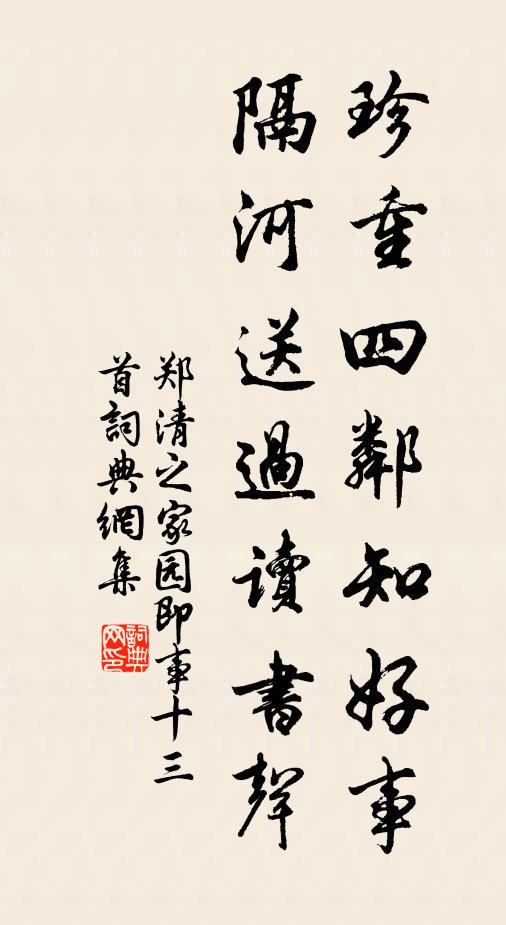 珍重四鄰知好事
隔河送過讀書聲
郑清之家园即事十三
首詞典網集
詞典网印